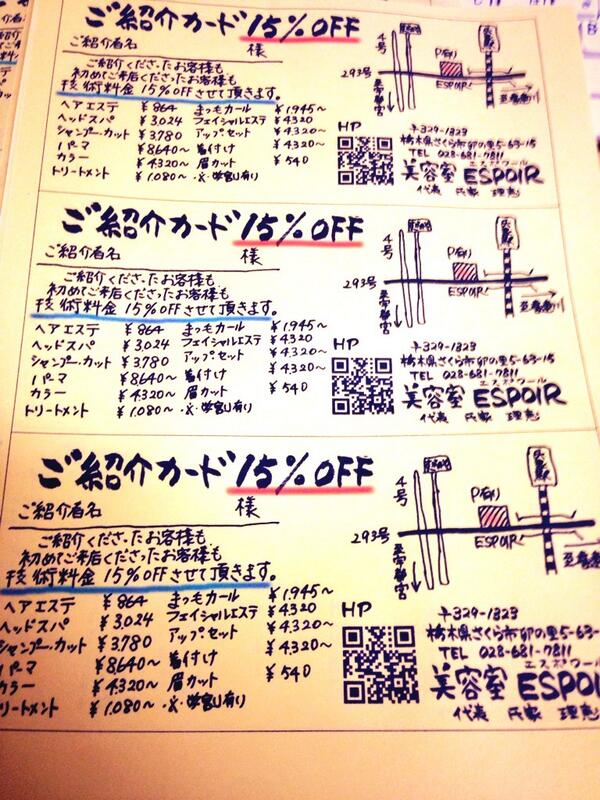 ご紹介カード 15%OFF
ご紹介者名 様
ご紹介くださったお客様も
初めてご来店くださったお客様も
技術料金 15%OFFさせて頂きます。
ヘアエステ ¥864 まつもカール ¥1,945~
ヘッドスパ ¥3,024 フェイシャルエステ ¥4,320
シャンプー・カット ¥3,780 アップセット ¥4,320~
パーマ ¥8640~ 着付け ¥4,320~
カラー ¥4,320~ 眉カット ¥540
トリートメント ¥1,080~ ※学割有り
4号
293号
P有り
ESPOIR
至宇都宮
HP
〒329-1323
栃木県さくら市卯の里5-63-15
TEL 028-681-7811
エスポワール
美容室 ESPOIR
代表 氏家 理恵
ご紹介カード 15%OFF
ご紹介者名 様
ご紹介くださったお客様も
初めてご来店くださったお客様も
技術料金 15%OFFさせて頂きます。
ヘアエステ ¥864 まつもカール ¥1,945~
ヘッドスパ ¥3,024 フェイシャルエステ ¥4,320
シャンプー・カット ¥3,780 アップセット ¥4,320~
パーマ ¥8640~ 着付け ¥4,320~
カラー ¥4,320~ 眉カット ¥540
トリートメント ¥1,080~ ※学割有り
4号
293号
P有り
ESPOIR
至宇都宮
HP
〒329-1323
栃木県さくら市卯の里5-63-15
TEL 028-681-7811
エスポワール
美容室 ESPOIR
代表 氏家 理恵
ご紹介カード 15%OFF
ご紹介者名 様
ご紹介くださったお客様も
初めてご来店くださったお客様も
技術料金 15%OFFさせて頂きます。
ヘアエステ ¥864 まつもカール ¥1,945~
ヘッドスパ ¥3,024 フェイシャルエステ ¥4,320
シャンプー・カット ¥3,780 アップセット ¥4,320~
パーマ ¥8640~ 着付け ¥4,320~
カラー ¥4,320~ 眉カット ¥540
トリートメント ¥1,080~ ※学割有り
4号
293号
P有り
ESPOIR
至宇都宮
HP
〒329-1323
栃木県さくら市卯の里5-63-
TEL 028-681-7811
エスポワール
美容室 ESPOIR
代表 氏家 理恵